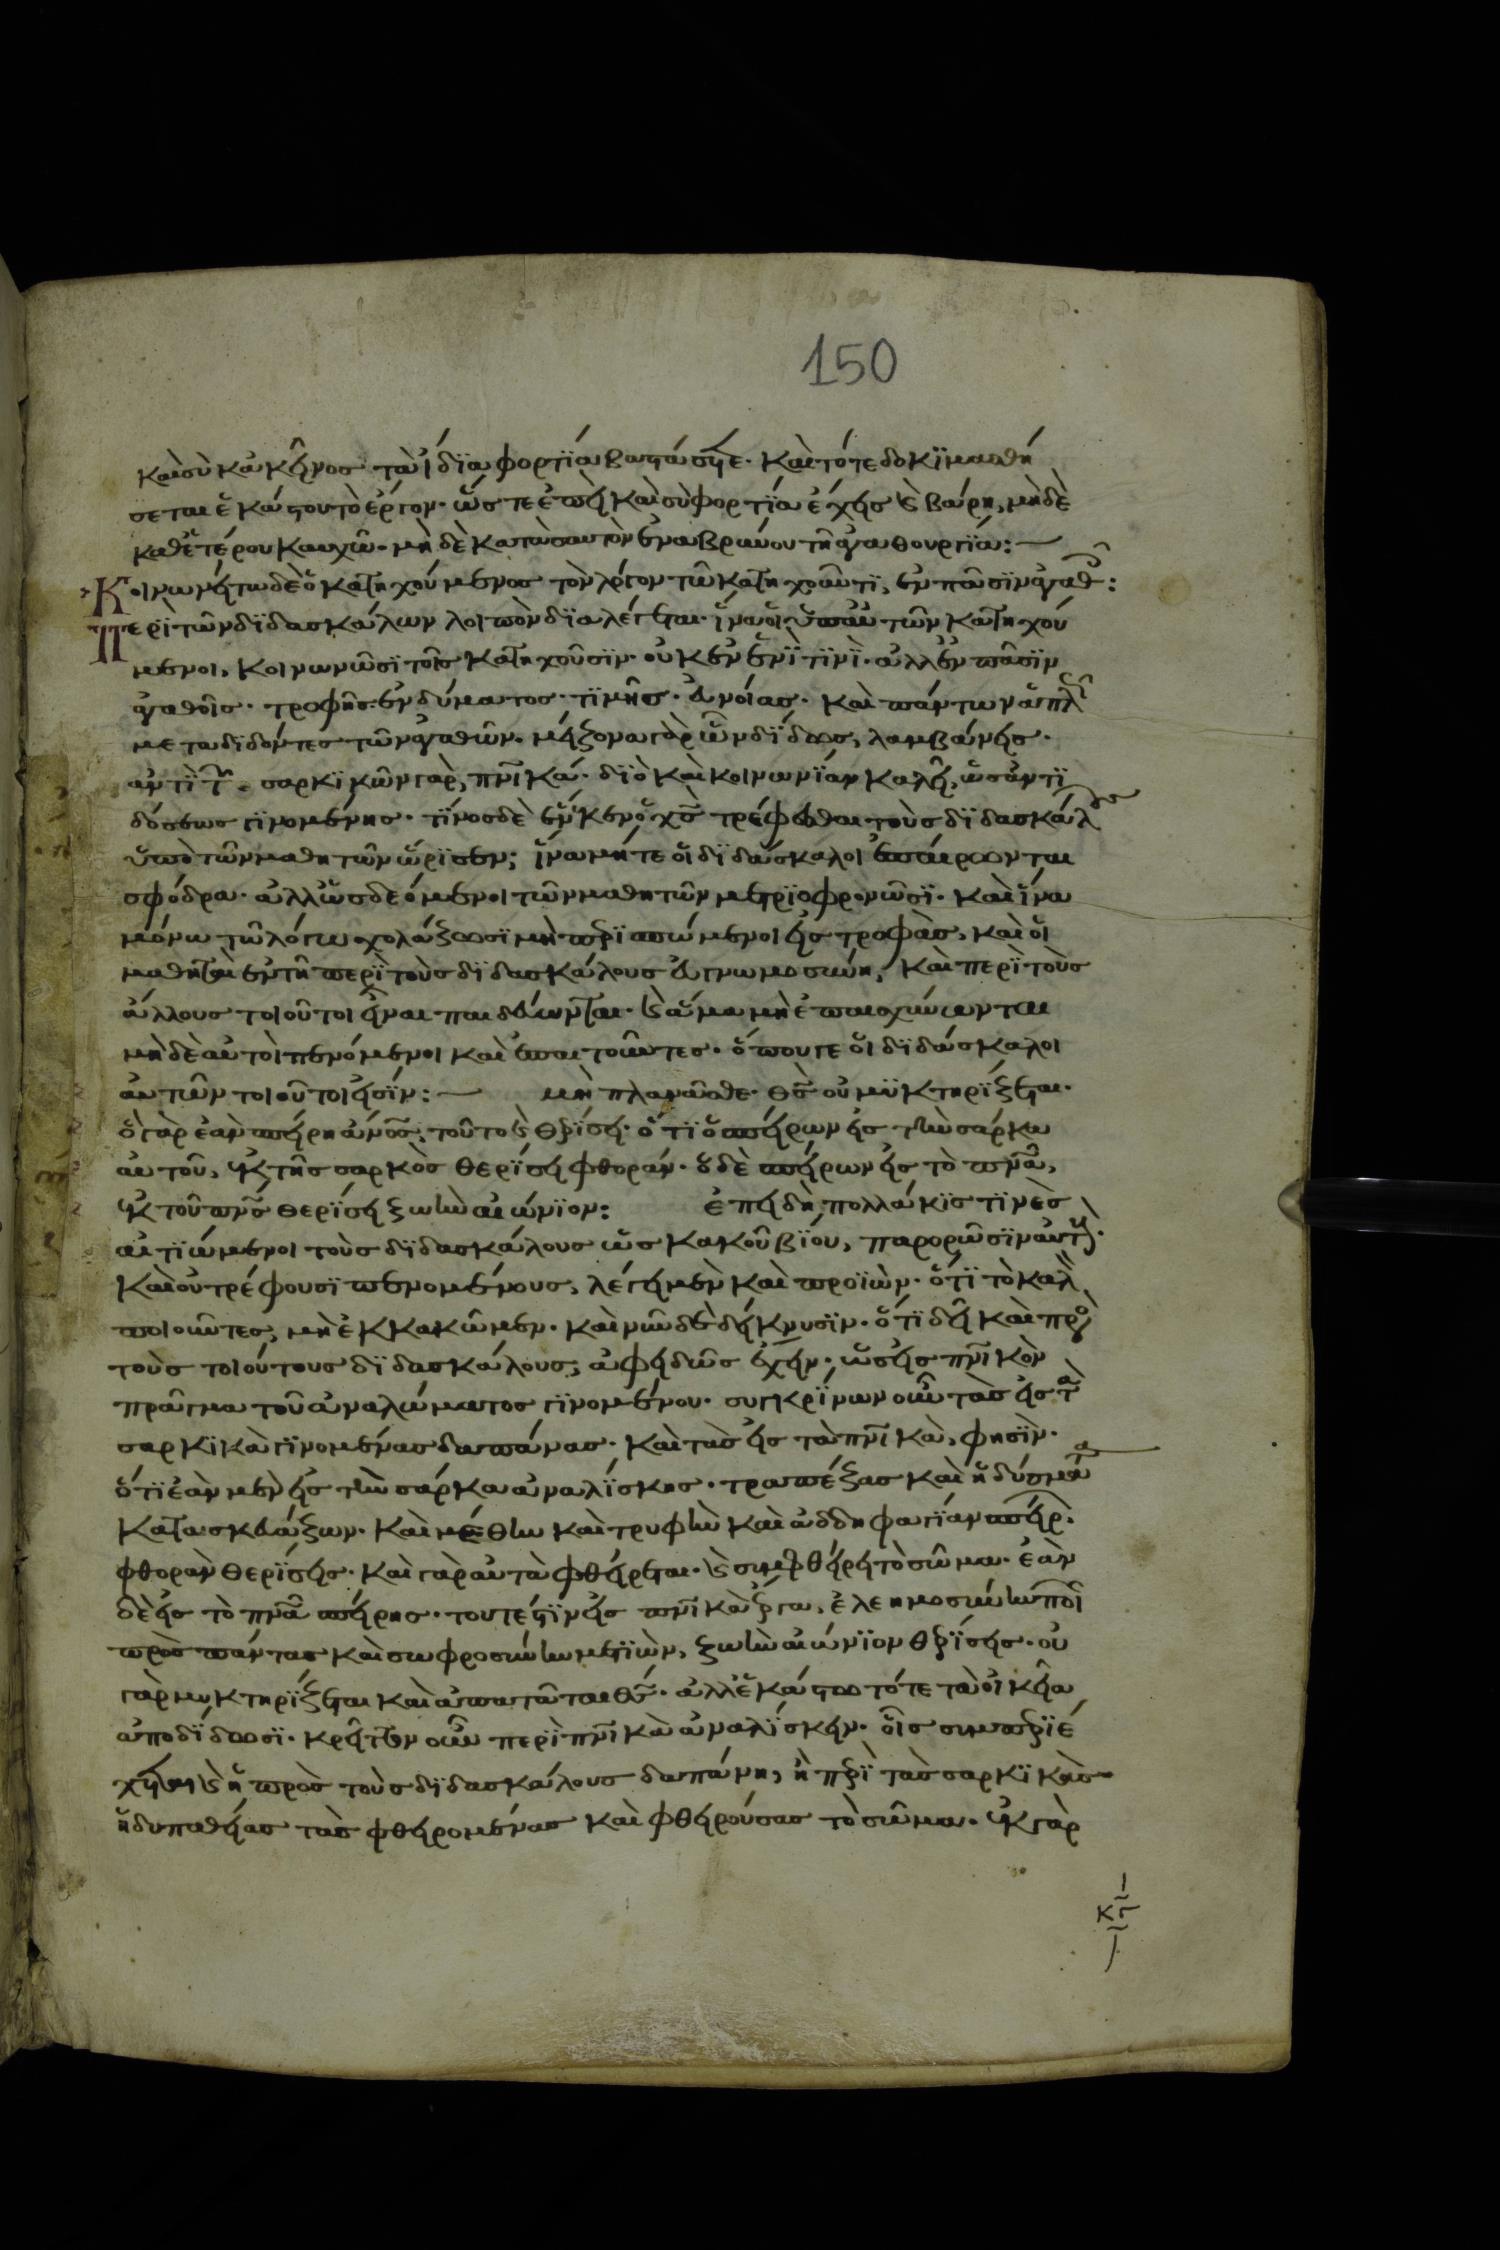 150
καὶ σὺ κἀκεῖνος τὰ ἴδϊα φορτία βαστάσητε. καὶ τότε δοκϊμασθή
σεται ἑκάστου τὸ ἔργον. ὥστε ἐπεὶ καὶ σὺ φορτία ἔχεις καὶ βάρη, μὴ δὲ
καθ' ἑτέρου καυχῶ. μὴ δὲ κατὰ σαυτὸν ἐναβρύνου τῆ ἀγαθουργία:
Κοινωνείτω δὲ ὁ κατηχούμενος τὸν λόγον τῶ κατηχοῦντϊ, ἐν πᾶσϊν ἀγαθοῖς:
Περὶ τῶν δϊδασκάλων λοιπὸν δϊαλέγεται. ἵνα οἱ ὑπ' αὐτῶν κατηχού
μενοι, κοινωνῶσϊ τοῖς κατηχοῦσϊν. οὐκ ἐν ἑνΐ τϊνΐ. ἀλλ' ἐν πᾶσϊν
ἀγαθοῖς. τροφῆς. ἐνδύματος. τϊμῆς. εὐνοίας. καὶ πάντων ἁπλῶς
μεταδϊδόντες τῶν ἀγαθῶν. μείζονα γὰρ ὧν δΐδως, λαμβάνεις.
ἀντὶ γὰρ σαρκϊκῶν γὰρ, πνϊκά. δϊὸ καὶ κοινωνΐαν καλεῖ, ὡς ἀντϊ
δόσεως γϊνομένης. τΐνος δὲ ἕνεκεν ὁ χς τρέφεσθαι τοὺς δϊδασκάλους
ὑπὸ τῶν μαθητῶν ὥρϊσεν; ἵνα μήτε οἱ δϊδάσκαλοι ἐπαίρωνται
σφόδρα. ἀλλ' ὡς δεόμενοι τῶν μαθητῶν μετρϊοφρονῶσϊ. καὶ ἵνα
μόνω τῶ λόγω σχολάζωσϊ μὴ περϊσπώμενοι εἰς τροφὰς, καὶ οἱ
μαθηταὶ ἐν τῆ περὶ τοὺς δϊδασκάλους εὐγνωμοσύνη, καὶ περὶ τοὺς
ἄλλους τοιοῦτοι εἶναι παιδεύωνται. καὶ ἅμα μὴ ἐπαισχύνωνται
μὴ δὲ αὐτοὶ πενόμενοι καὶ ἐπαιτοῦντες. ὅπου γε οἱ δϊδάσκαλοι
αὐτῶν τοιοῦτοι εἰσΐν: μὴ πλανᾶσθε. θς οὐ μϋκτηρΐζεται.
ὃ γὰρ ἐὰν σπείρη ἄνος, τοῦτο καὶ θερΐσει. ὅτϊ ὁ σπείρων εἰς τὴν σάρκα
αὐτοῦ, ἐκ τῆς σαρκὸς θερΐσει φθοράν. ὁ δὲ σπείρων εἰς τὸ πνα,
ἐκ τοῦ πνς θερΐσει ζωὴν αἰώνϊον: ἐπειδὴ πολλάκϊς τϊνὲς
αἰτϊώμενοι τοὺς δϊδασκάλους ὡς κακοῦ βΐου, παρορῶσϊν αὐτούς.
καὶ οὐ τρέφουσϊ πενομένους, λέγει μὲν καὶ προϊὼν. ὅτΐ τὸ καλὸν
ποιοῦντες, μὴ ἐκκακῶμεν. καὶ νῦν δὲ δείκνυσϊν. ὅτϊ δεῖ καὶ πρὸς
τοὺς τοιούτους δϊδασκάλους, ἀφειδῶς ἔχειν. ὡς εἰς πνϊκὸν
πρᾶγμα τοῦ ἀναλώματος γϊνομένου. συγκρΐνων οὖν τὰς εἰς τὰ
σαρκϊκὰ γϊνομένας δαπάνας. καὶ τὰς εἰς τὰ πνϊκὰ, φησΐν.
ὅτϊ ἐὰν μὲν εἰς τὴν σάρκα ἀναλΐσκης. τραπέζας καὶ ἡδύσματα
κατασκευάζων. καὶ μέθην καὶ τρυφὴν καὶ ἀδδηφαγΐαν σπείρων.
φθορὰν θερΐσεις. καὶ γὰρ αὐτὰ φθείρεται. καὶ συμφθείρει τὸ σῶμα. ἐὰν
δὲ εἰς τὸ πνα σπείρης. τουτέστϊν εἰς πνϊκὰ ἔργα, ἐλεημοσύνην ποιῶν
πρὸς πάντας καὶ σωφροσύνην μετϊὼν, ζωὴν αἰώνϊον θερΐσεις. οὐ
γὰρ μυκτηρΐζεται καὶ ἀπατᾶται θς. ἀλλ' ἑκάστω τότε τὰ οἰκεῖα
ἀποδΐδωσϊ. κρεῖττον οὖν περὶ πνϊκὰ ἀναλΐσκειν. οἷς συμπερϊέ
χεται καὶ ἡ πρὸς τοὺς δϊδασκάλους δαπάνη, ἢ περὶ τὰς σαρκϊκὰς
ἡδυπαθείας τὰς φθειρομένας καὶ φθειρούσας τὸ σῶμα. ἐκ γὰρ